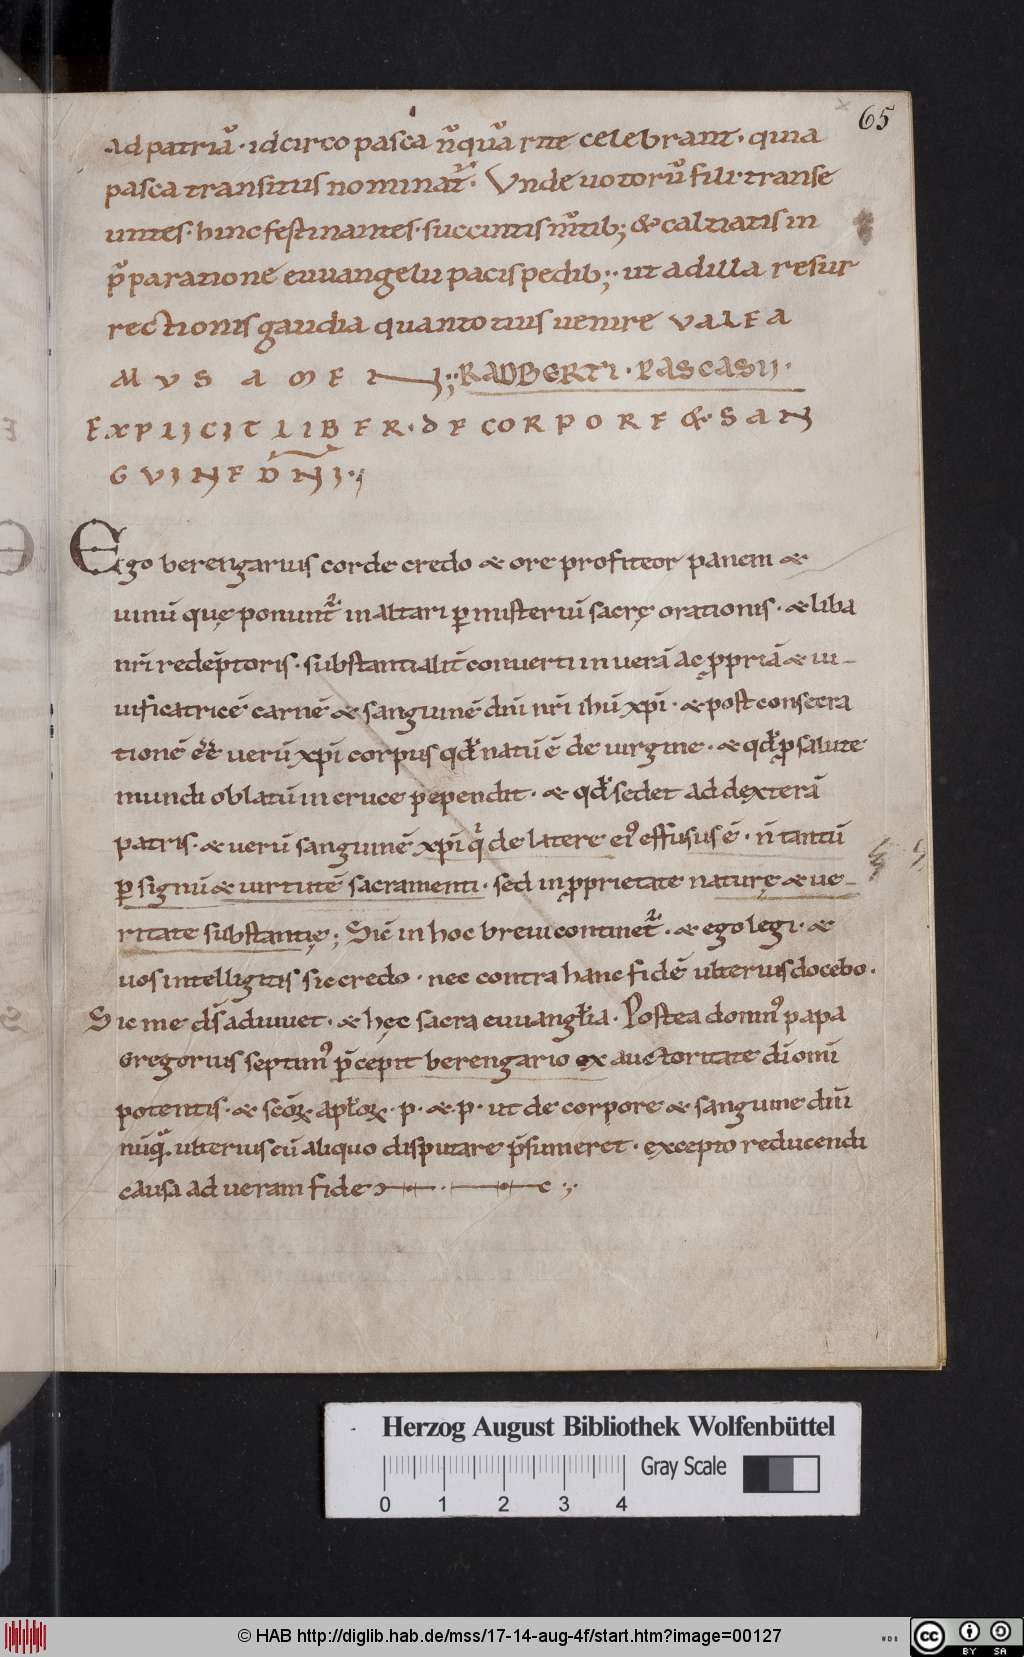 65
ad patriā· idcirco pasca nūquā rite celebrant· quia
pasca transitus nominat᷑· Vnde uotorū fili transe
untes· hinc festinantes· succintis m̄tib; & caltiatis in
p̄paratione euuangelii pacis pedib;· ut ad illa resur
rectionis gaudia quantotius uenire VALEA
MVS AMEN;· RADBERTI· PASCASII·
EXPLICIT LIBER· DE CORPORE & SAN
GVINE DN̄I·;
Ego berengarius corde credo & ore profiteor panem &
uinū quę ponunt᷑ in altari ꝑ misteriū sacrę orationis· & liba
nr̄i redēptoris· substantialit̄ conuerti in uerā ac ꝓpriā & ui-
uificatricē carnē & sanguinē dn̄i nr̄i ihū xp̄i· & post consecra
tionē eē uerū xp̄i corpus qđ natū ē de uirgine· & qđ ꝓ salute
mundi oblatū in cruce pependit· & qđ sedet ad dexterā
patris· & uerū sanguinē xp̄i qi de latere ei᷒ effusus ē· n̄ tantū
ꝑ signū & uirtutē sacramenti· sed in ꝓprietate naturę & ue-
ritate substantię; Sic̄ in hoc breui continet᷑· & ego legi· &
uos intelligitis sic credo· nec contra hanc fidē ulterius docebo·
Sic me dс̄ adiuuet· & hęc sacra euuangłia· Postea domn᷒ papa
Gregorius septim᷒ p̄cepit berengario ex auctoritate di omi
potentis· & scōꝝ apłoꝝ· p· & p· ut de corpore & sanguine dn̄i
nūqᷓ ulterius cū aliquo disputare p̄sumeret· excepto reducendi
causa ad ueram fidē
Herzog August Bibliothek Wolfenbüttel
Gray Scale
0 1 2 3 4
© HAB http://diglib.hab.de/mss/17-14-aug-4f/start.htm?image=00127
WDB
cc BY SA